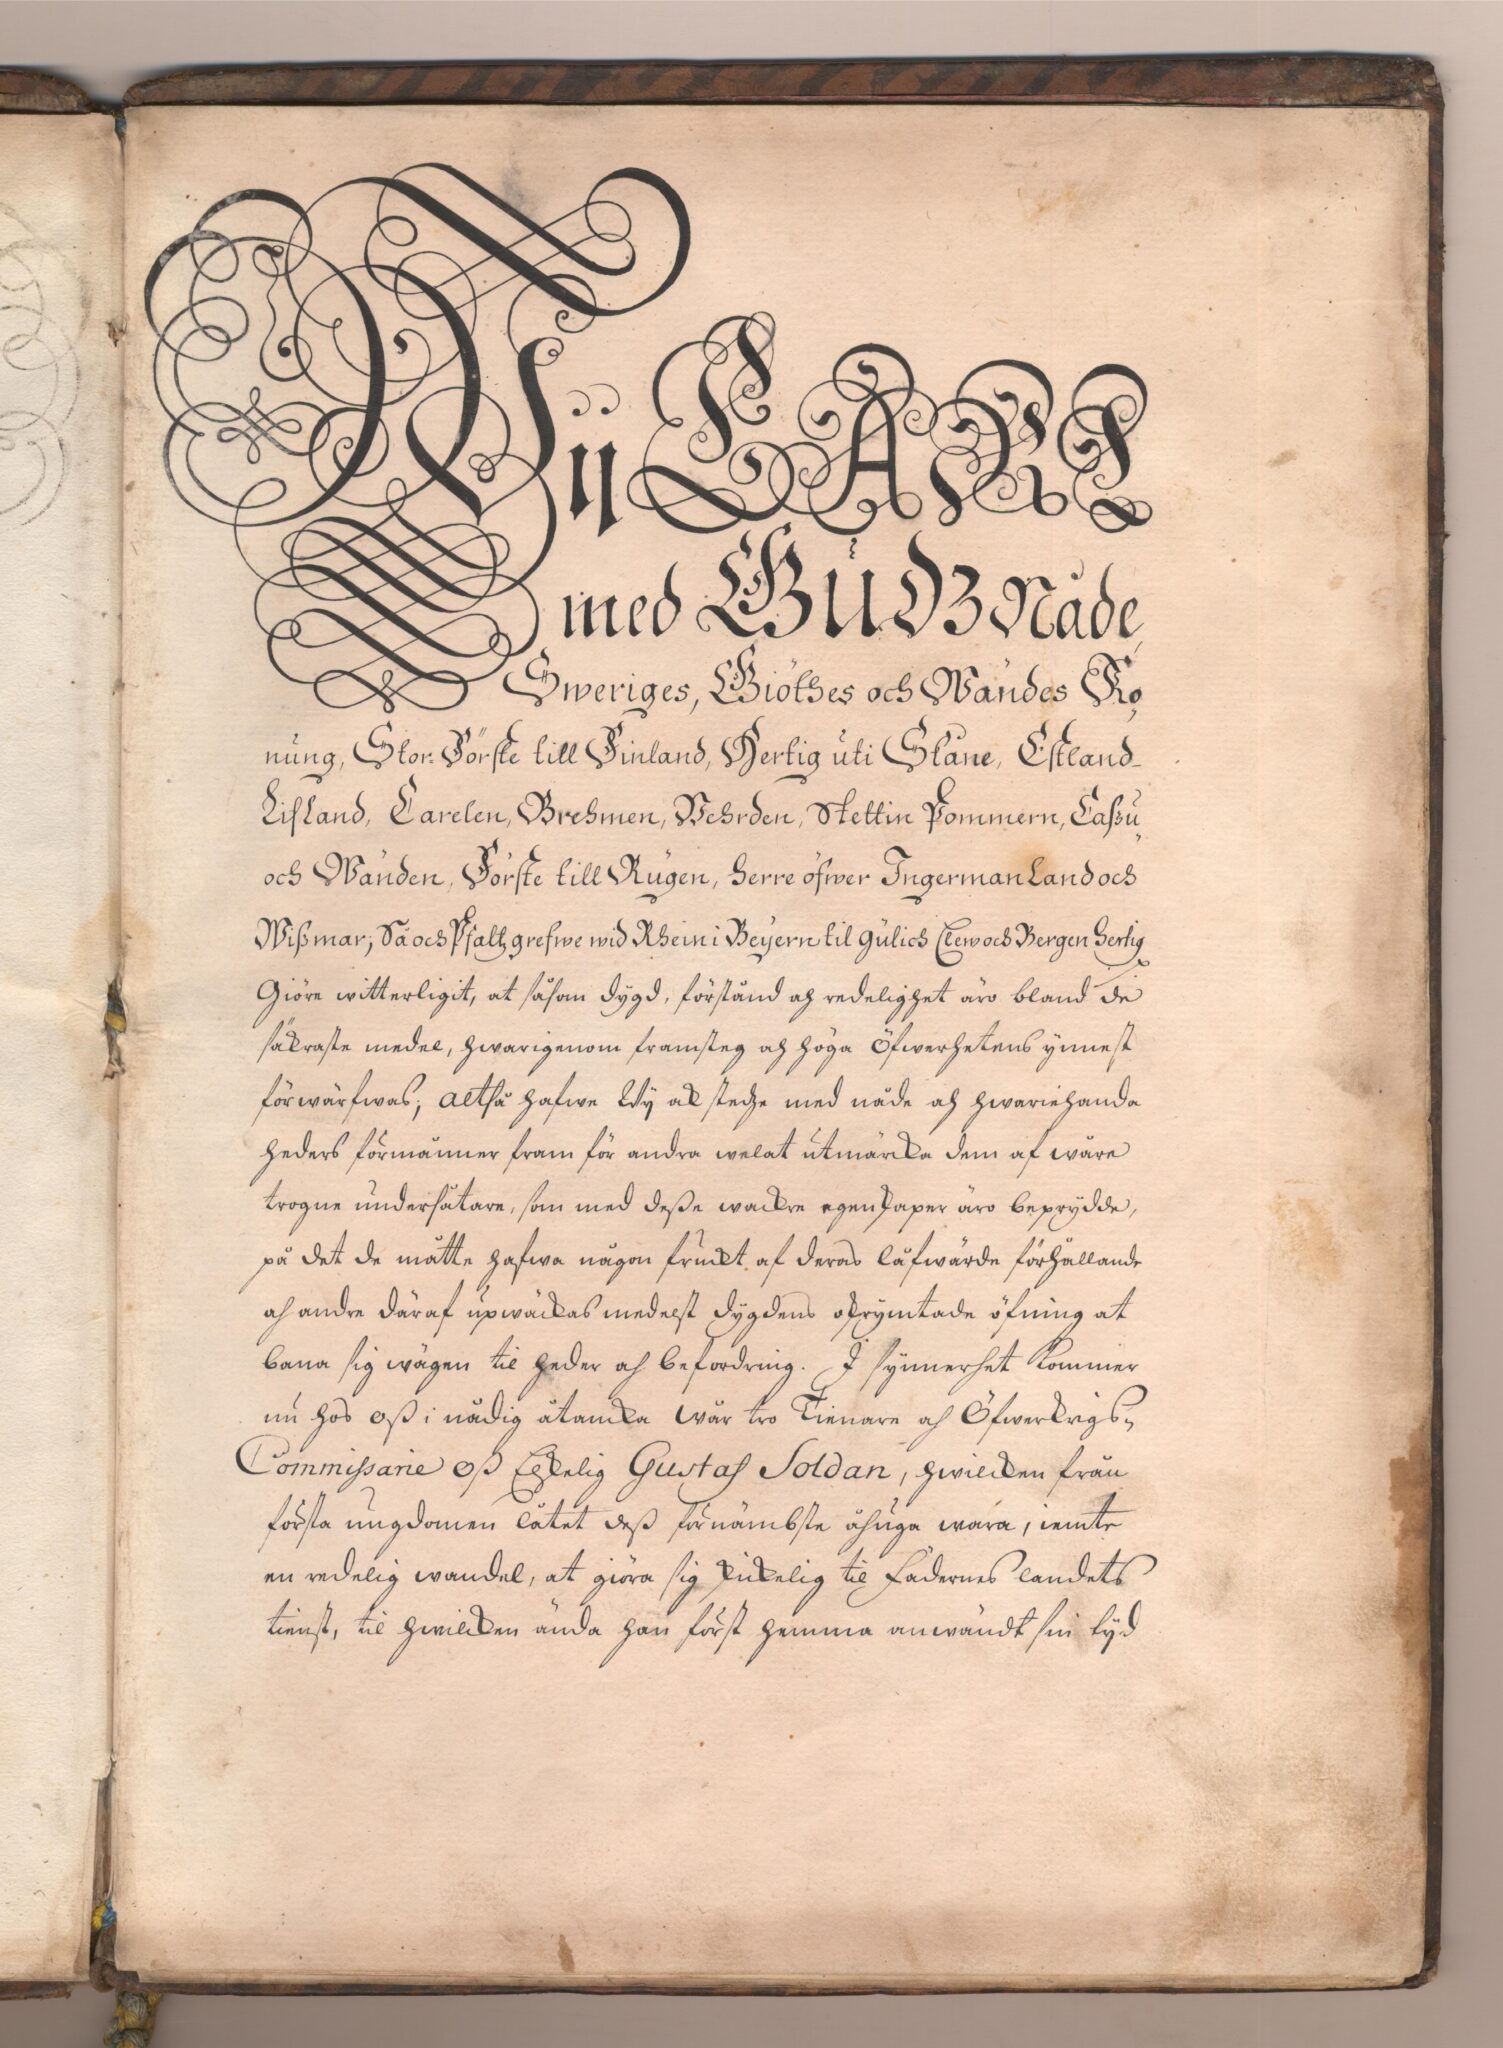 Wij CARL
med GUDZ Nåde,
Sweriges, Giöthes och Wändes Ko-
nung, Stor: Förste till Finland, Hertig uti Skåne, Estland-
Lifland, Carelen, Brehmen, Vehrden, Stettin Pommern, Caßu
och Wänden, Förste till Rügen, Herre öfwer Ingermanland och
Wißmar; Så och Pfaltzgrefwe wid Rhein i Beyern til Gülich Clew och Bergen Hertig
Giöre witterligit, at såsom dygd, förstånd och redelighet äro bland de
säkraste medel, hwarigenom framsteg och höga Öfwerhetens ynnest
förwärfwas; altså hafwe Wy ock med nåde och hwariehanda
heders förmåner fram för andra welat utmärcka dem af wåre
trogne undersåtare, som med deße wackre egenskaper äro beprydde,
på det de måtte hafwa någon fruckt af deras låfwärde förhållande
och andre däraf upwäckas medelst dygdens oskrymtade öfning at
bana sig wägen til heder och befordring. I synnerhet kommer
nu hos oß i nådig åtancka wår tro Tienare och Öfwerkrigs-
Commissarie oß Elskelig Gustaf Soldan, hwilcken från
första ungdomen låtet deß förnämbste åhuga wara, iemte
en redelig wandel, at giöra sig skickelig til Fädernes landets
tienst, til hwilcken ända han först hemma anwändt sin tyd